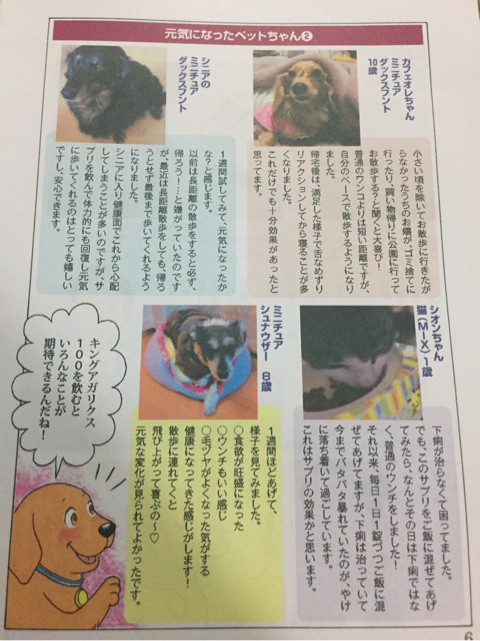 元気になったペットちゃん❷
カフェオレちゃん
ミニチュア
ダックスフント
10歳
小さい頃を除いてお散歩に行きたが
らなかったうちのお嬢が、ゴミ捨てに
行ったり、買い物帰りに公園に行って
お散歩する?と聞くと大喜び!
普通のワンコよりは短い距離ですが、
自分のペースで散歩するようになり
ました。
帰宅後は、満足した様子で舌なめずり
リアクションしてから寝ることが多
くなりました。
これだけでも十分効果があったと
思ってます。
シニアの
ミニチュア
ダックスフント
1週間試してみて、元気になったか
な?と感じます。
以前は長距離の散歩をすると必ず、
帰ろう!…と嫌がっていたのです
が、最近は長距離散歩をしても、帰ろ
うとせず最後まで歩いてくれるよう
になりました。
シニアに入り健康面でこれから心配
してしまうことが多いのですが、サ
プリを飲んで体力的にも回復し元気
に歩いてくれるのはとっても嬉しい
ですし、安心できます。
シオンちゃん
猫(MIX)1歳
下痢が治らなくて困ってました。
でも、このサプリをご飯に混ぜてあげ
てみたら、なんとその日は下痢ではな
く、普通のウンチをしました!
それ以来、毎日1日1錠づつご飯に混
ぜてあげてますが、下痢は治っていて
今までバタバタ暴れていたのが、やけ
に落ち着いて過ごしています。
これはサプリの効果かと思います。
ミニチュア
シュナウザー 8歳
1週間ほどあげて、
様子を見てみました。
○食欲が旺盛になった
○ウンチもいい感じ
○毛ヅヤがよくなった気がする
健康になってきた感じがします!
散歩に連れてくと
飛び上がって喜ぶのー♡
元気な変化が見られてよかったです。
キングアガリクス
100を飲むと
いろんなことが
期待できるんだね!
6